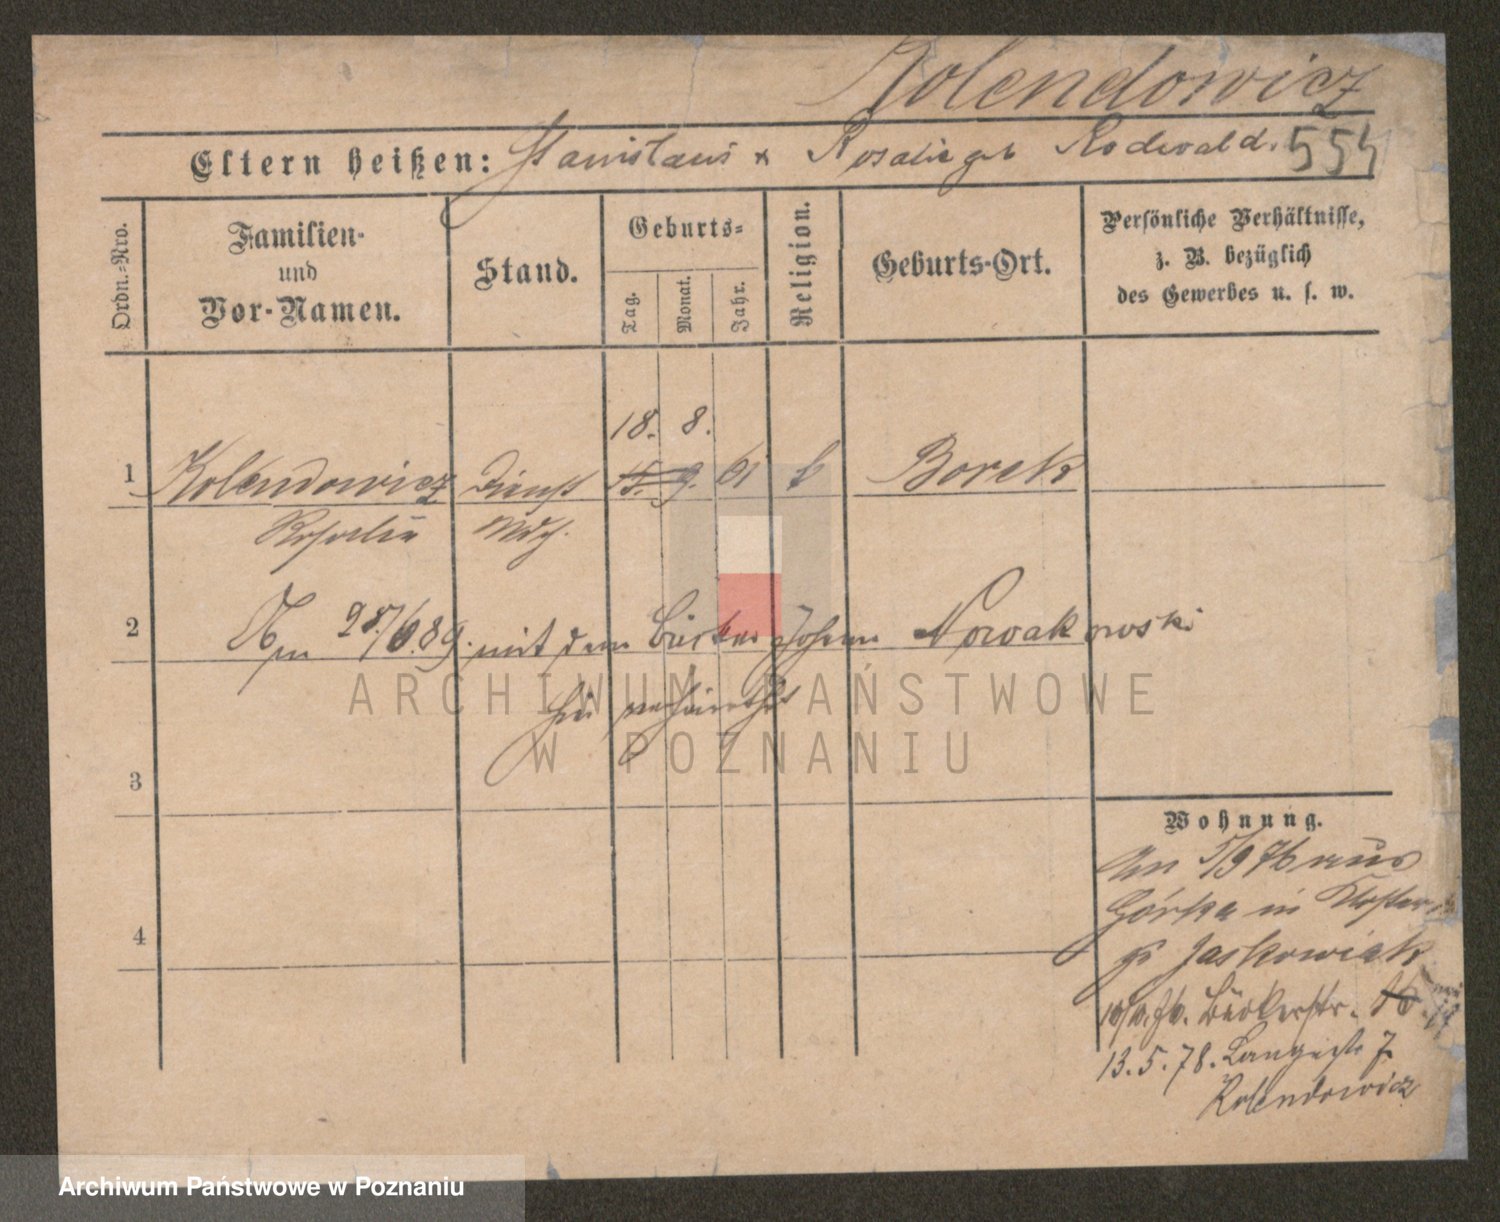 Kolendowicz
Eltern heißen: Stanislaus & Rosalie geb Rodewald.
554
Ordn.-Nro.
Familien-
und
Vor-Namen.
Stand.
Geburts-
Tag.
Monat.
Jahr.
Religion.
Geburts-Ort.
Persönliche Verhältnisse,
z. B. bezüglich
des Gewerbes u. s. w.
18. 8.
1 Kolendowicz Dienst 15. 9. 61 k Borek
Rosalie Mdch.
2 Am 28/6.89. mit dem Bäcker Johann Nowakowski
hier verheirathet
3
4
Wohnung.
Am 5/9 76 aus
Górka in Kloster
Jaskowiak
Bäckerstr. 16
13.5.78. Langestr 7.
Kolendowicz
ARCHIWUM PAŃSTWOWE
W POZNANIU
Archiwum Państwowe w Poznaniu